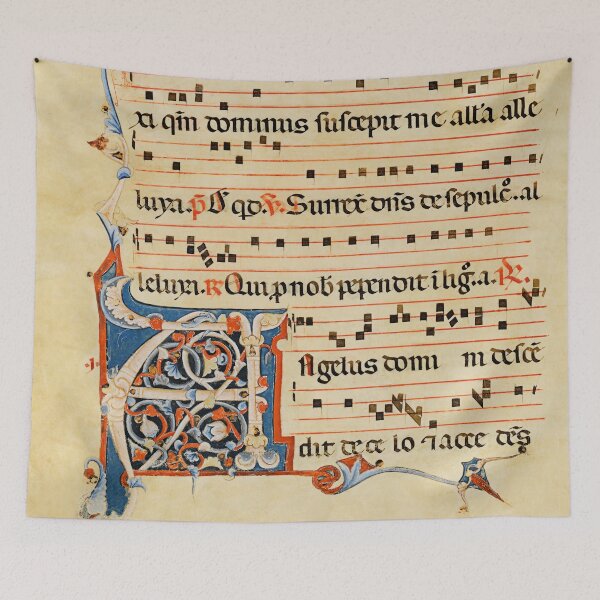 xi qm̄ dominus suscepit me all'a alle
luya. p̄s qd. ℣. Surrex̄ dn̄s de sepulc̊. al
leluya. ℟ Qui p nob̄ pependit ī lig̊. a. 
Angelus domi ni descē
dit de ce lo ⁊ acce dēs